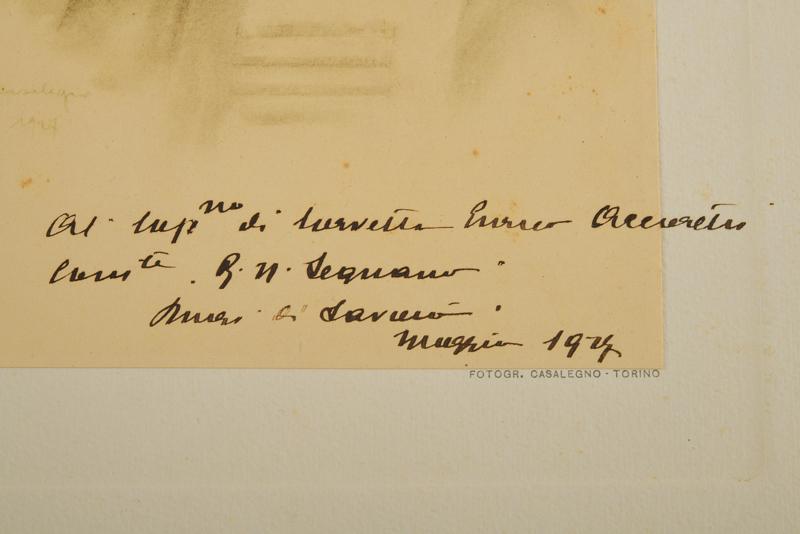 Casalegno
1927
Al Cap no di Corvetta Enrico Accoretti
Com te R. N. Legnano
di Savoia
Maggio 1927
FOTOGR. CASALEGNO - TORINO